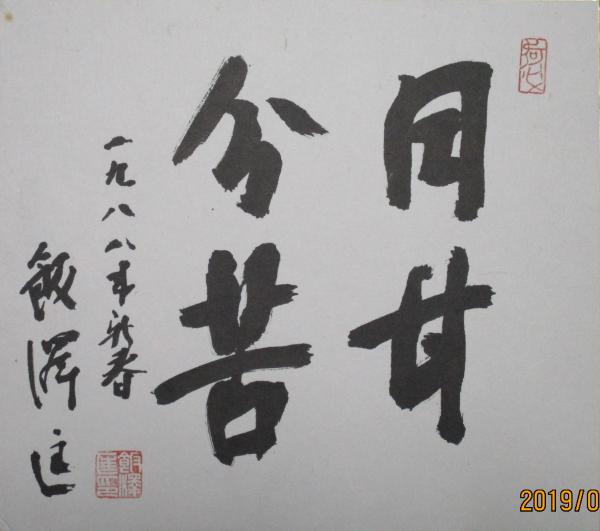 同甘
分苦
一九八八年新春
飯澤匡
2019/0